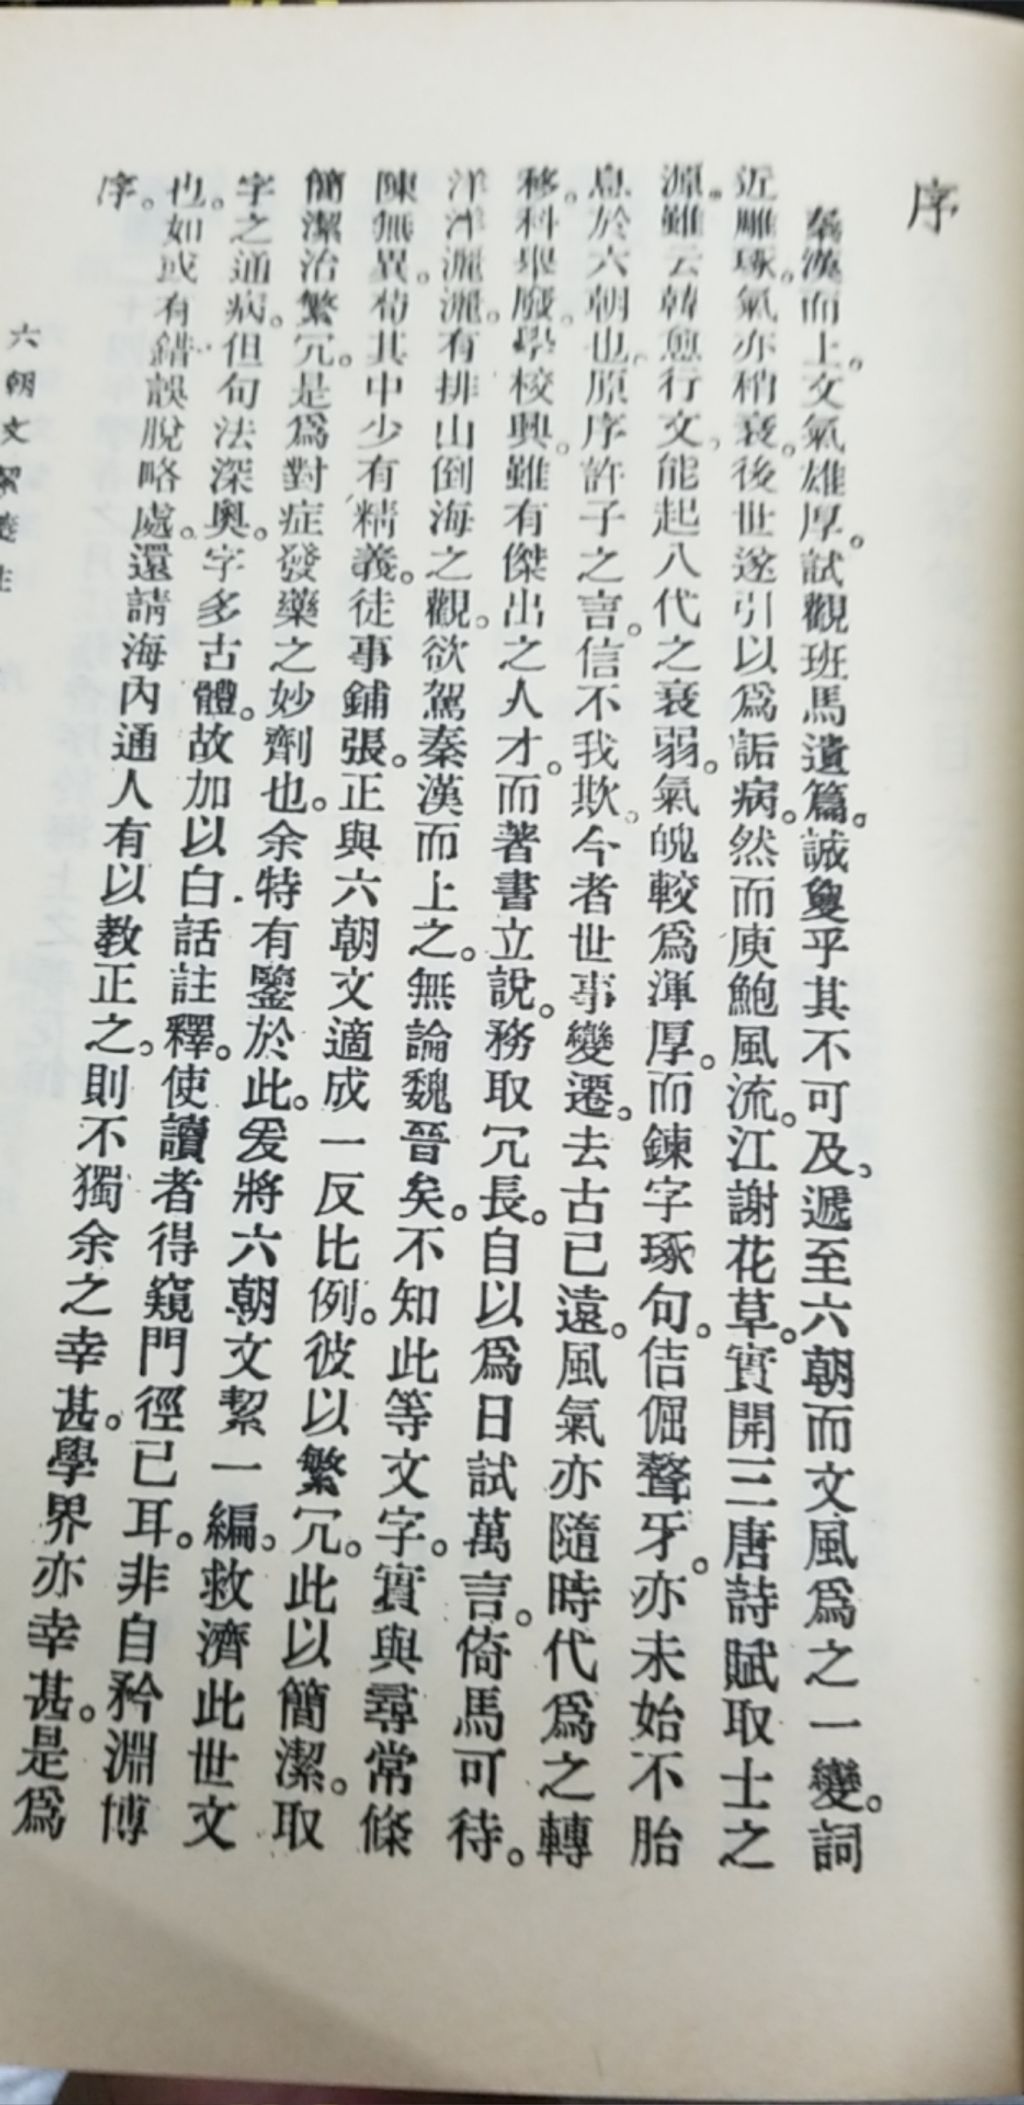 序
秦漢而上。文氣雄厚。試觀班馬遺篇。誠敻乎其不可及。遞至六朝而文風爲之一變。詞
近雕琢。氣亦稍衰。後世遂引以爲詬病。然而庾鮑風流。江謝花草。實開三唐詩賦取士之
源。雖云韓愈行文。能起八代之衰弱。氣魄較爲渾厚。而鍊字琢句。佶倔聱牙。亦未始不胎
息於六朝也。原序許子之言。信不我欺。今者世事變遷。去古已遠。風氣亦隨時代爲之轉
移。科舉廢。學校興。雖有傑出之人才。而著書立說。務取冗長。自以爲日試萬言。倚馬可待。
洋洋灑灑。有排山倒海之觀。欲駕秦漢而上之。無論魏晉矣。不知此等文字。實與尋常條
陳無異。苟其中少有精義。徒事鋪張。正與六朝文適成一反比例。彼以繁冗。此以簡潔。取
簡潔治繁冗。是爲對症發藥之妙劑也。余特有鑒於此。爰將六朝文絜一編。救濟此世文
字之通病。但句法深奧。字多古體。故加以白話註釋。使讀者得窺門徑已耳。非自矜淵博
也。如或有錯誤脫略處。還請海內通人有以教正之。則不獨余之幸甚。學界亦幸甚。是爲
序。
六朝文絜箋註